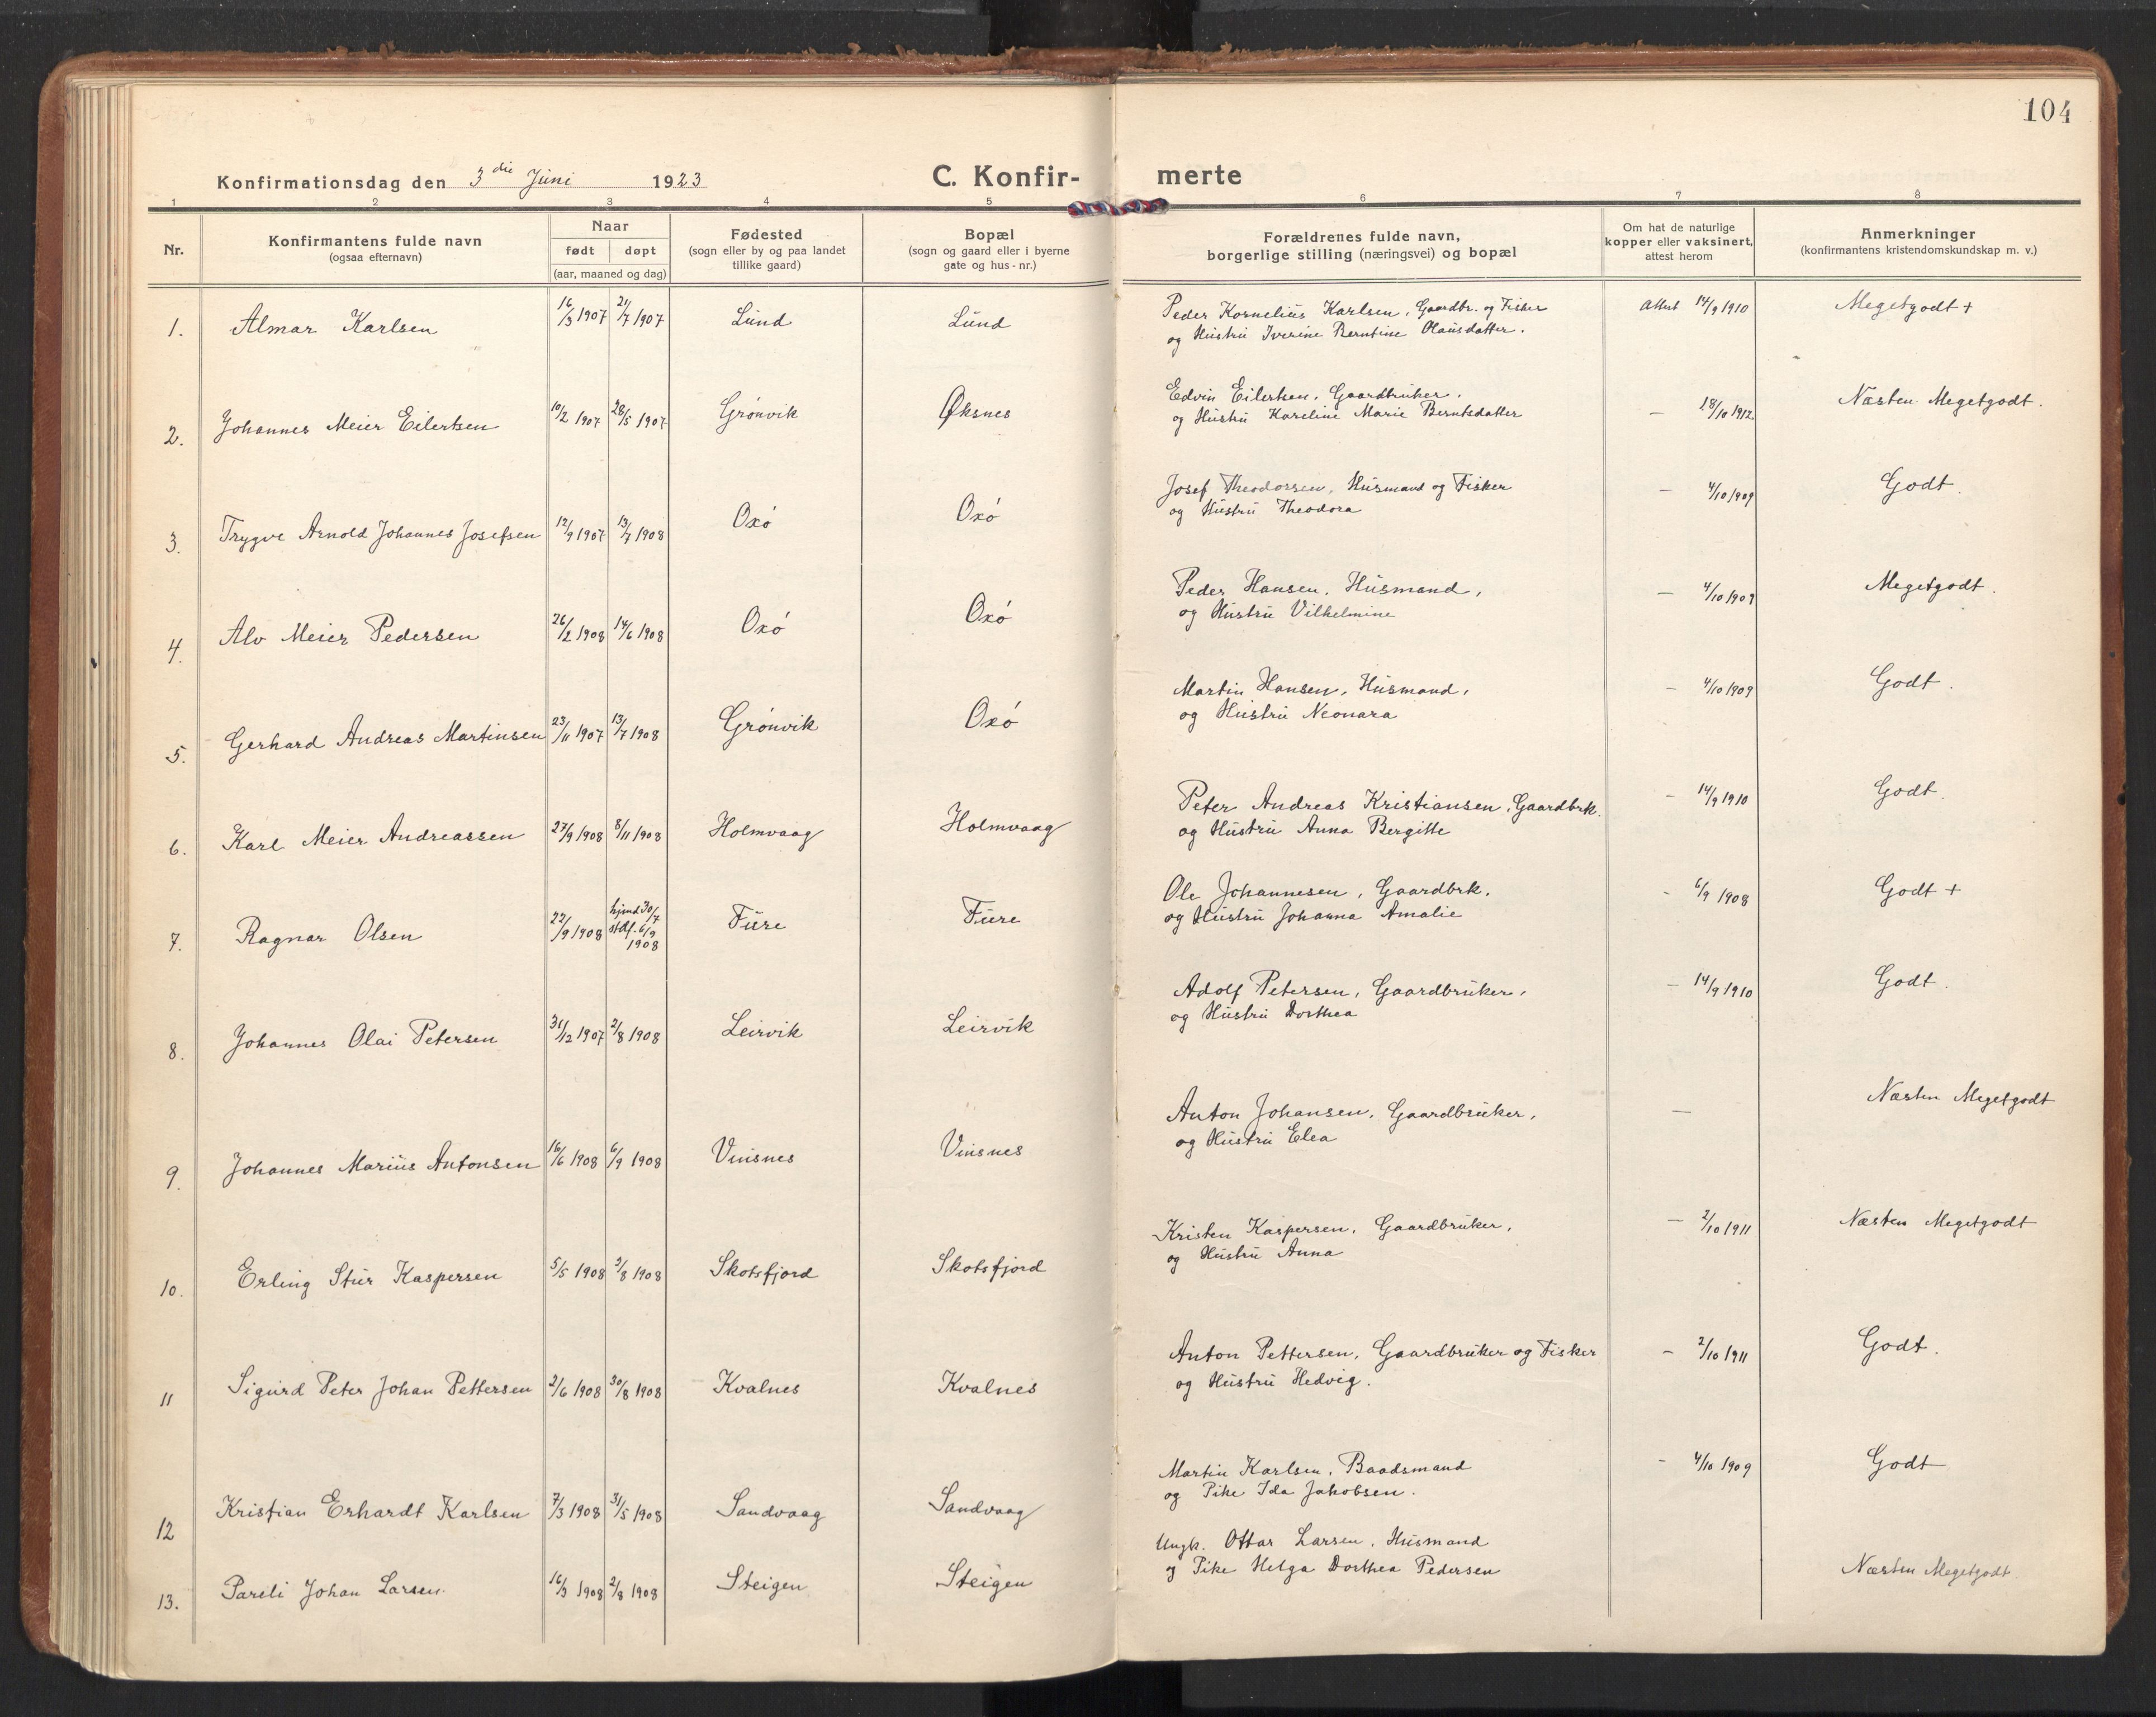 104
Konfirmationsdag den 3die Juni 1923
C. Konfir- merte
1 2 3 4 5 6 7 8
Nr.
Konfirmantens fulde navn
(ogsaa efternavn)
Naar
født døpt
(aar, maaned og dag)
Fødested
(sogn eller by og paa landet
tillike gaard)
Bopæl
(sogn og gaard eller i byerne
gate og hus-nr.)
Forældrenes fulde navn,
borgerlige stilling (næringsvei) og bopæl
Om hat de naturlige
kopper eller vaksinert,
attest herom
Anmerkninger
(konfirmantens kristendomskundskap m. v.)
1. Almar Karlsen 16/3 1907 21/7 1907 Lund Lund Peder Kornelius Karlsen, Gaardbr. og Fisker Attest 14/9 1910 Megetgodt +
og Hustru Iverine Berntine Olausdatter.
2. Johannes Meier Eilertsen 10/2 1907 28/5 1907 Grønvik Øksnes Edvin Eilertsen, Gaardbruker, — 28/10 1912. Næsten Megetgodt.
og Hustru Kareline Marie Berntsdatter
3. Trygve Arnold Johannes Josefsen 12/9 1907 13/7 1908 Oxó Oxó Josef Theodorsen, Husmand og Fisker — 4/10 1909 Godt.
og Hustru Theodora
4. Alv Meier Pedersen 26/2 1908 14/6 1908 Oxó Oxó Peder Hansen, Husmand, — 4/10 1909 Megetgodt.
og Hustru Vilhelmine
5. Gerhard Andreas Martinsen 23/11 1907 13/7 1908 Grónvik Oxó Martin Hansen, Husmand, — 4/10 1909 Godt.
og Hustru Neonara
6. Karl Meier Andreassen 27/9 1908 8/11 1908 Holmvaag Holmvaag Peter Andreas Kristiansen, Gaardbrk. — 14/9 1910 Godt.
og Hustru Anna Bergitte
7. Ragnar Olsen 22/9 1908 hjmd 30/7 stdf. 6/9 1908 Fure Fure Ole Johannesen, Gaardbrk. - 6/9 1908 Godt +
og Hustru Johanna Amalie
8. Johannes Olai Petersen 31/12 1907 2/8 1908 Leirvik Leirvik Adolf Petersen, Gaardbruker, — 14/9 1910 Godt.
og Hustru Dorthea
9. Johannes Marius Antonsen 16/6 1908 6/9 1908 Vinsnes Vinsnes Anton Johansen, Gaardbruker, — Næsten Megetgodt
og Hustru Elea
10. Erling Stur Kaspersen 5/5 1908 2/8 1908 Skotsfjord Skotsfjord Kristen Kaspersen, Gaardbruker, — 2/10 1911 Næsten Megetgodt
og Hustru Anna
11 Sigurd Peter Johan Pettersen 2/6 1908 30/8 1908 Kvalnes Kvalnes Anton Pettersen, Gaardbruker og Fisker - 2/10 1911 Godt.
og Hustru Hedvig.
12 Kristian Erhardt Karlsen 7/3 1908 31/5 1908 Sandvaag Sandvaag Martin Karlsen, Baadsmand - 4/10 1909 Godt
og Pike Ida Jakobsen.
13. Pareli Johan Larsen. 16/3 1908 2/8 1908 Steigen Steigen Ungk. Ottar Larsen, Husmand Næsten Megetgodt.
og Pike Helga Dorthea Pedersen